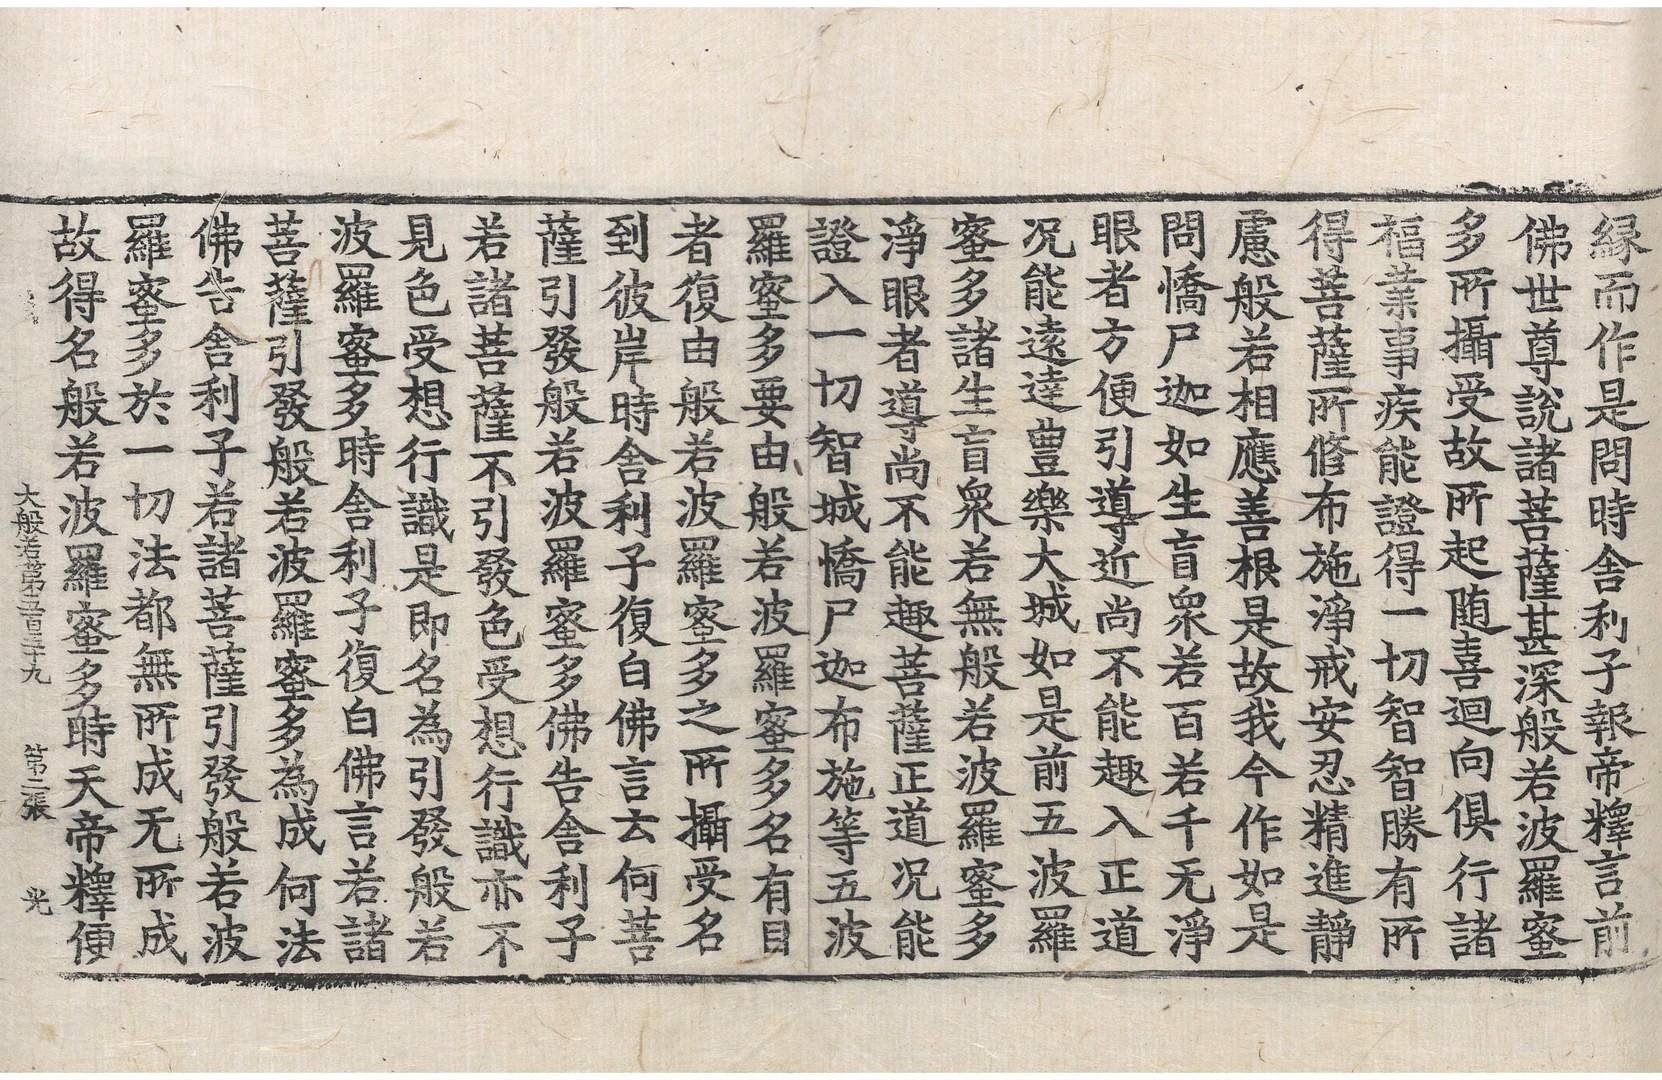 縁而作是問時舍利子報帝釋言前
佛世尊說諸菩薩甚深般若波羅蜜
多所攝受故所起随喜迴向俱行諸
福業事疾能證得一切智智勝有所
得菩薩所修布施淨戒安忍精進靜
慮般若相應善根是故我今作如是
問憍尸迦如生盲衆若百若千无淨
眼者方便引導近尚不能趣入正道
况能遠達豊樂大城如是前五波羅
蜜多諸生盲衆若無般若波羅蜜多
淨眼者導尚不能趣菩薩正道况能
證入一切智城憍尸迦布施等五波
羅蜜多要由般若波羅蜜多名有目
者復由般若波羅蜜多之所攝受名
到彼岸時舍利子復白佛言云何菩
薩引發般若波羅蜜多佛告舍利子
若諸菩薩不引發色受想行識亦不
見色受想行識是即名為引發般若
波羅蜜多時舍利子復白佛言若諸
菩薩引發般若波羅蜜多為成何法
佛告舍利子若諸菩薩引發般若波
羅蜜多於一切法都無所成无所成
故得名般若波羅蜜多時天帝釋便
大般若第五百三十九 第二張 光